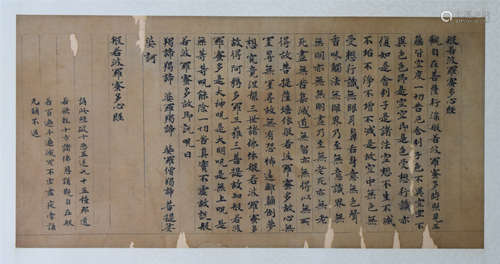 般若波羅蜜多心經
觀自在菩薩行深般若波羅蜜多時照見五
蘊皆空度一切苦厄舍利子色不異空空不
異色色即是空空即是色受想行識亦
復如是舍利子是諸法空想不生不滅
不垢不淨不增不減是故空中無色無
受想行識無眼耳鼻舌身意無色聲
香味觸法無眼界乃至無意識界無
無明亦無無明盡乃至無老死亦無老
死盡無苦集滅道無智亦無得以無所
得故菩提薩埵依般若波羅蜜多故心無
罣礙無罣礙故無有恐怖遠離顛倒夢
想究竟涅槃三世諸佛依般若波羅蜜多
故得阿耨多羅三藐三菩提故知般若波
羅蜜多是大神呪是大明呪是無上呪是
無等等呪能除一切苦真實不虛故說般
若波羅蜜多呪即說呪曰
揭諦揭諦 波羅揭諦 波羅僧揭諦 菩提莎
婆訶
般若波羅蜜多心經
誦此經破十惡五逆九十五種邪道
若欲報十方諸佛恩誦觀自在般
若百遍千遍滅罪不虛晝夜常誦
無願不果